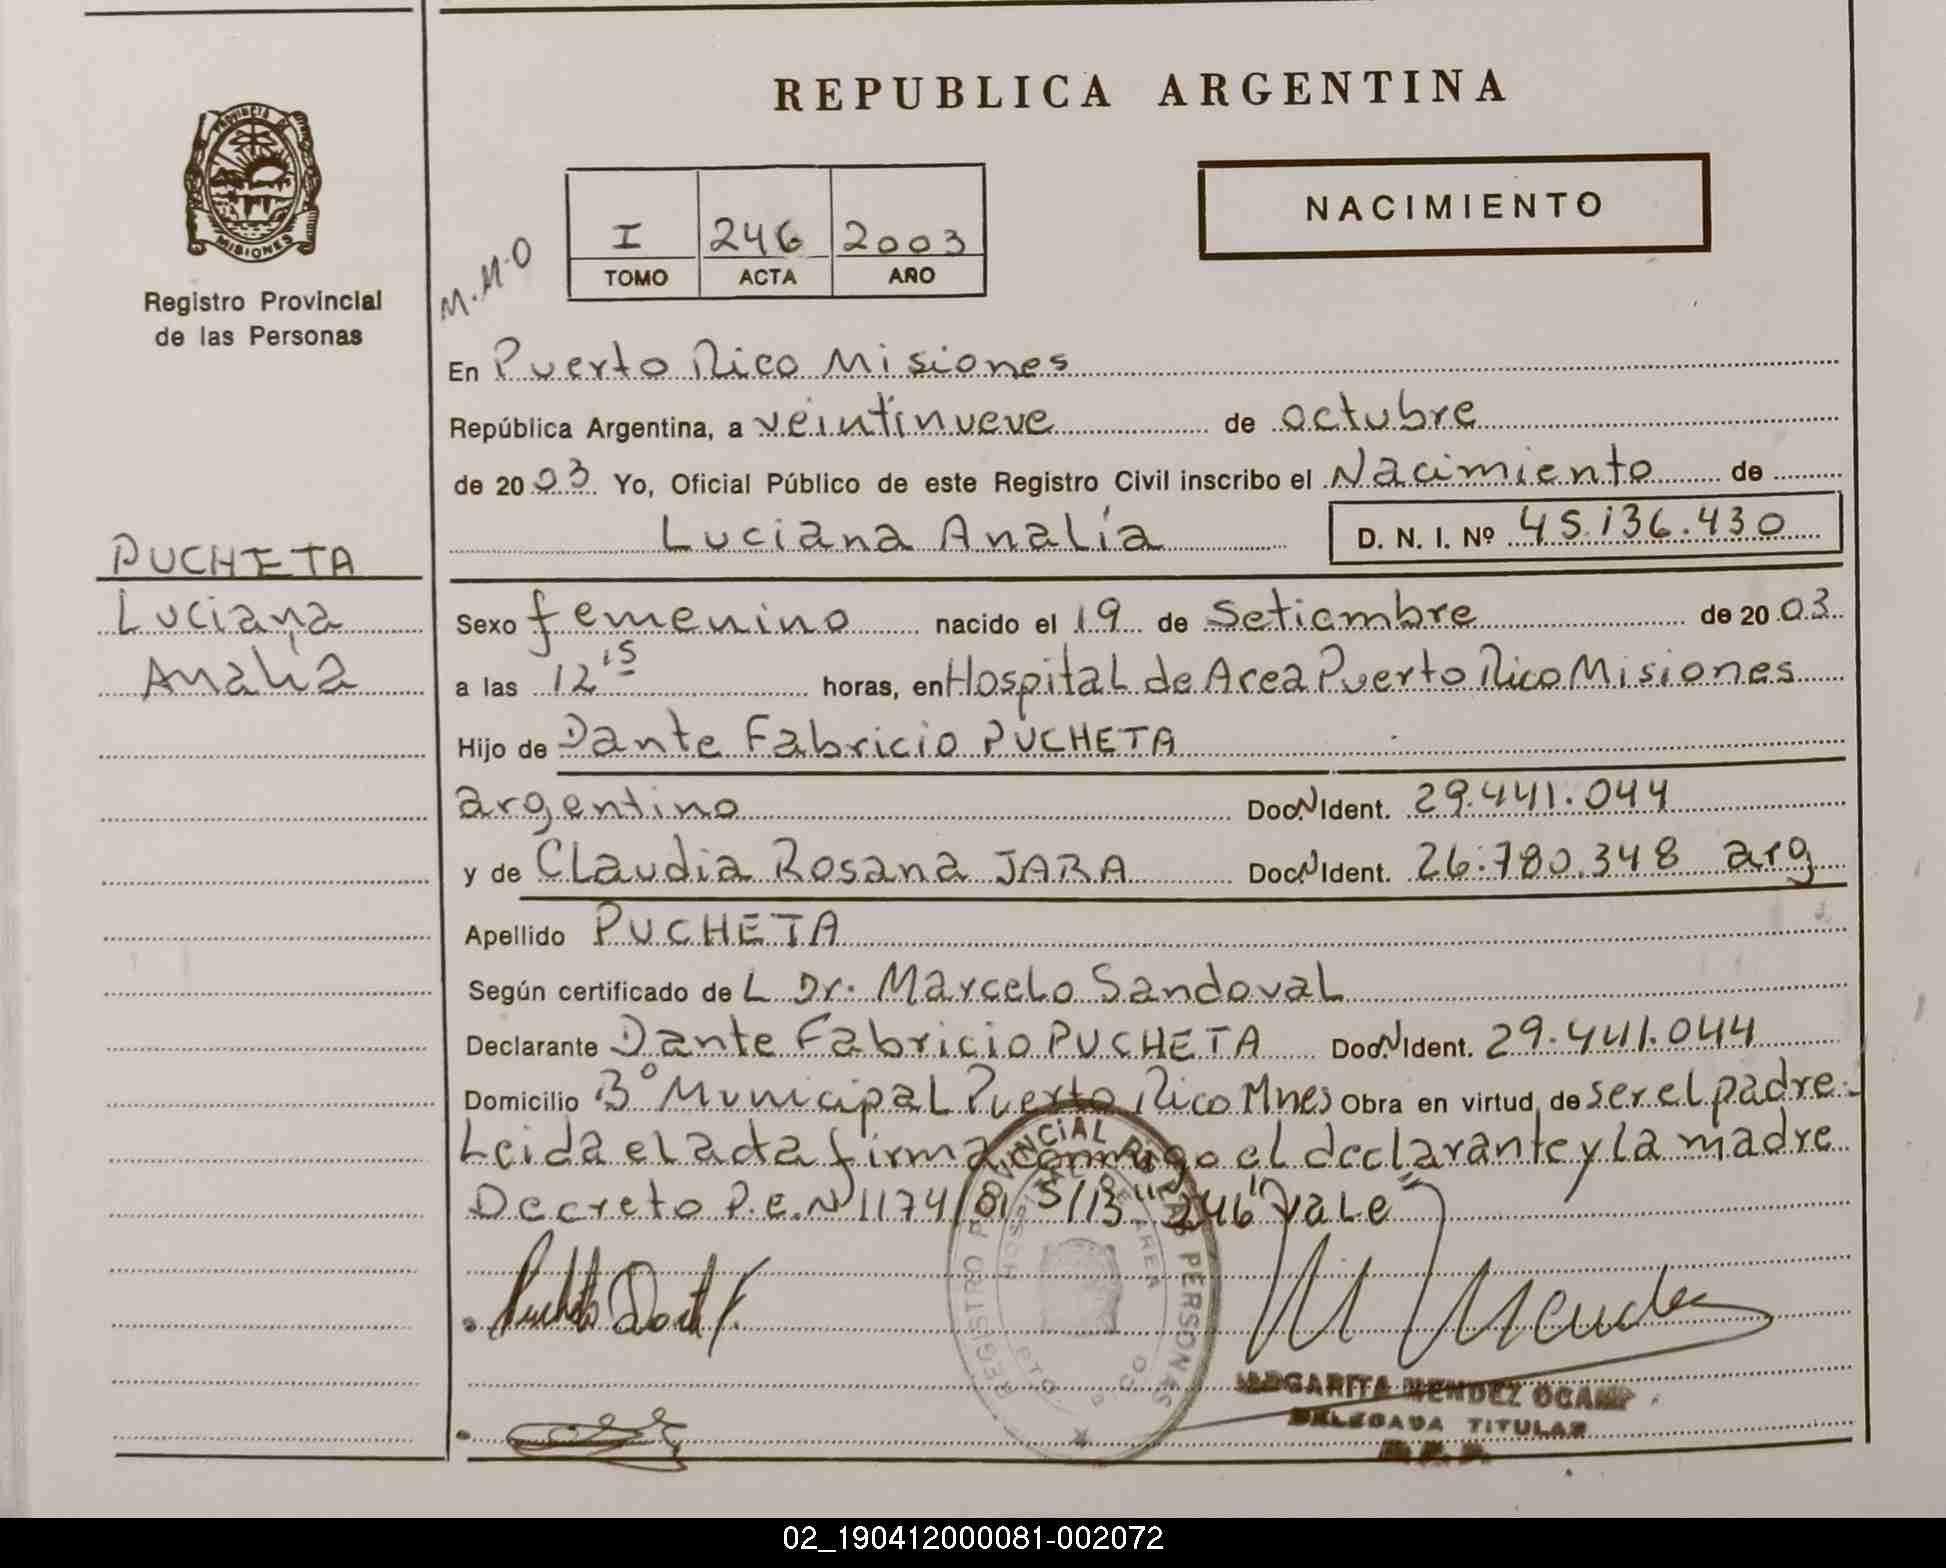 REPUBLICA ARGENTINA
PROVINCIA DE
MISIONES
Registro Provincial
de las Personas
NACIMIENTO
I 246 2003
TOMO ACTA AÑO
M.M.O
En Puerto Rico Misiones
República Argentina, a veintinueve de octubre
de 2003 Yo, Oficial Público de este Registro Civil inscribo el Nacimiento de
Luciana Analía D. N. I. Nº 45.136.430
PUCHETA
Luciana
Analía
Sexo femenino nacido el 19 de Setiembre de 2003
a las 12 15 horas, en Hospital de Area Puerto Rico Misiones
Hijo de Dante Fabricio PUCHETA
argentino Doc.N.Ident. 29.441.044
y de Claudia Rosana JARA Doc.N.Ident. 26.780.348 arg
Apellido PUCHETA
Según certificado de L Dr. Marcelo Sandoval
Declarante Dante Fabricio PUCHETA Doc.N.Ident. 29.441.044
Domicilio Bº Municipal Puerto Rico Mnes Obra en virtud de ser el padre.-
Leida el acta firma conmigo el declarante y la madre
Decreto P.E.Nº 1174/81 S/B "246" Vale
REGISTRO PROVINCIAL DE LAS PERSONAS
HOSPITAL DE AREA
PTO. RICO
Pucheta Dante F.
M Mendez
MARGARITA MENDEZ OCAMP
DELEGADA TITULAR
02_190412000081-002072